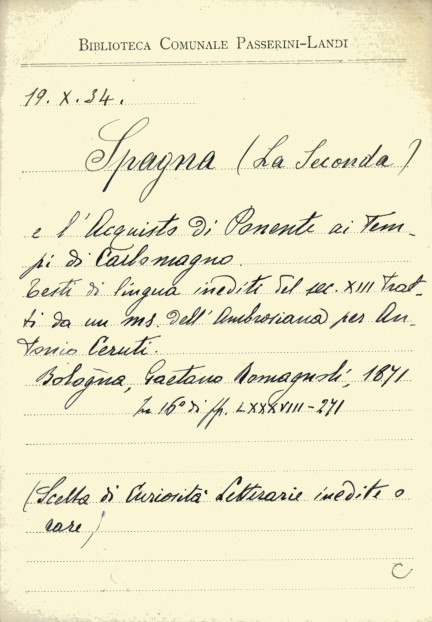 BIBLIOTECA COMUNALE PASSERINI-LANDI
19. X. 34.
Spagna (La Seconda)
e l'Acquisto di Ponente ai Tem-
pi di Carlomagno.
Testi di lingua inediti del sec. XIII trat-
ti da un ms. dell'Ambrosiana per An-
tonio Ceruti.
Bologna, Gaetano Romagnoli, 1871
In 16° di pp. LXXXVIII-271
(Scelta di Curiosità Letterarie inedite o
rare)
C